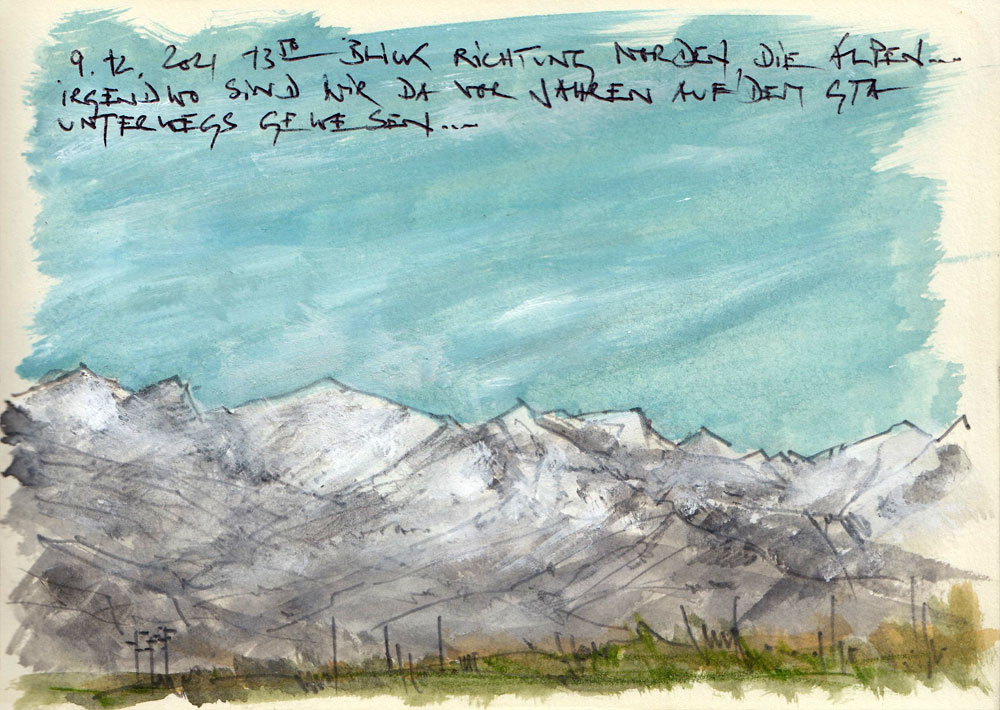 9. 12. 2021 13¹⁰ BLICK RICHTUNG NORDEN, DIE ALPEN...
IRGENDWO SIND WIR DA VOR JAHREN AUF DEM GTA
UNTERWEGS GEWESEN...